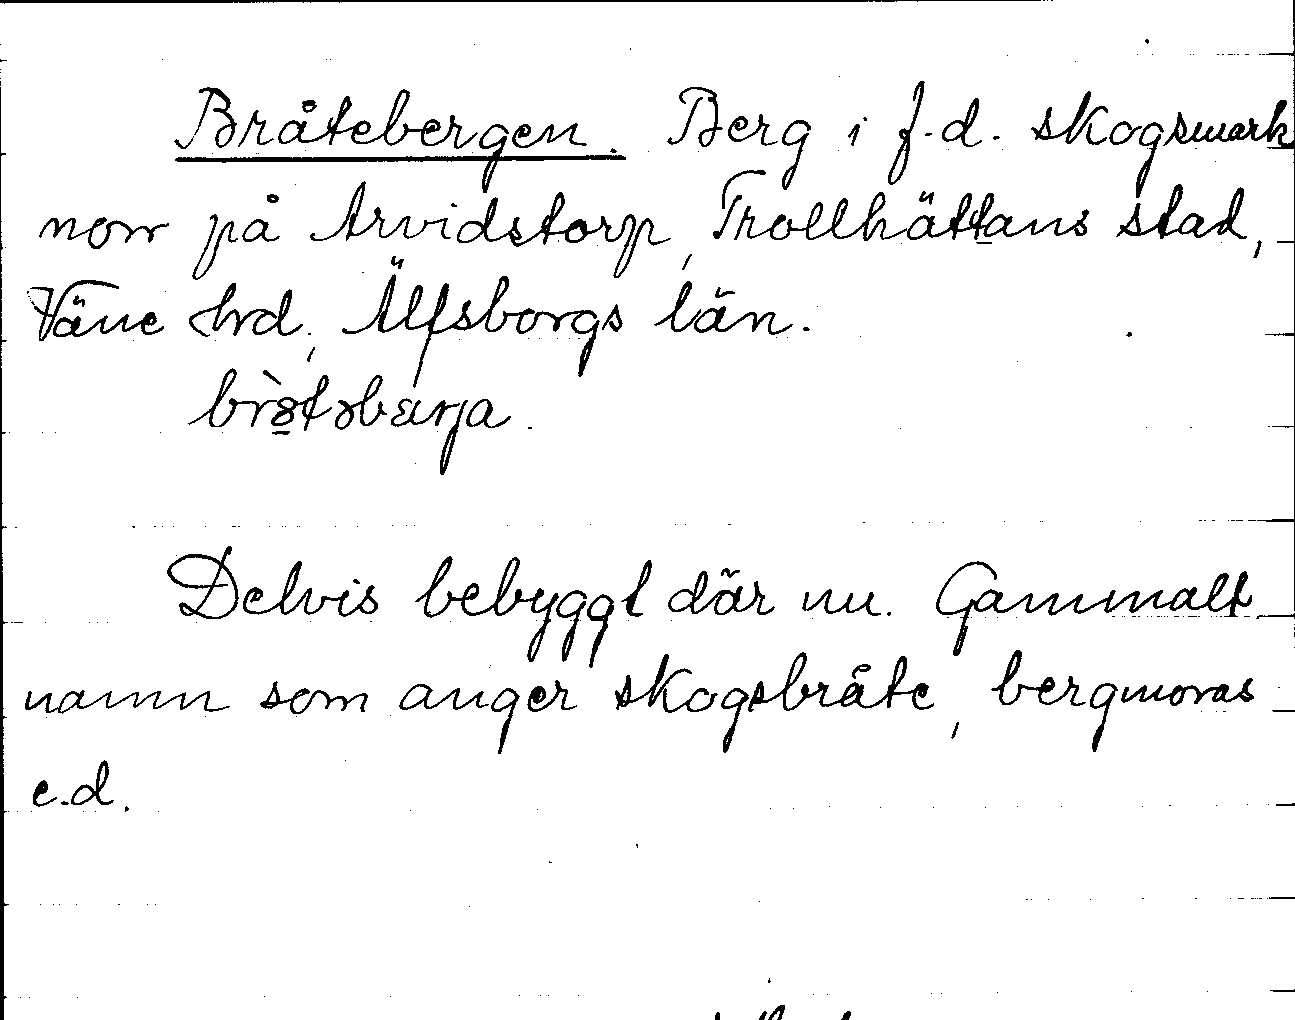 Bråtebergen. Berg i f.d. skogsmark
norr på Arvidstorp, Trollhättans stad,
Väne hrd, Älfsborgs län.
Delvis bebyggt där nu. Gammalt
namn som anger skogsbråte, bergmoras
e.d.